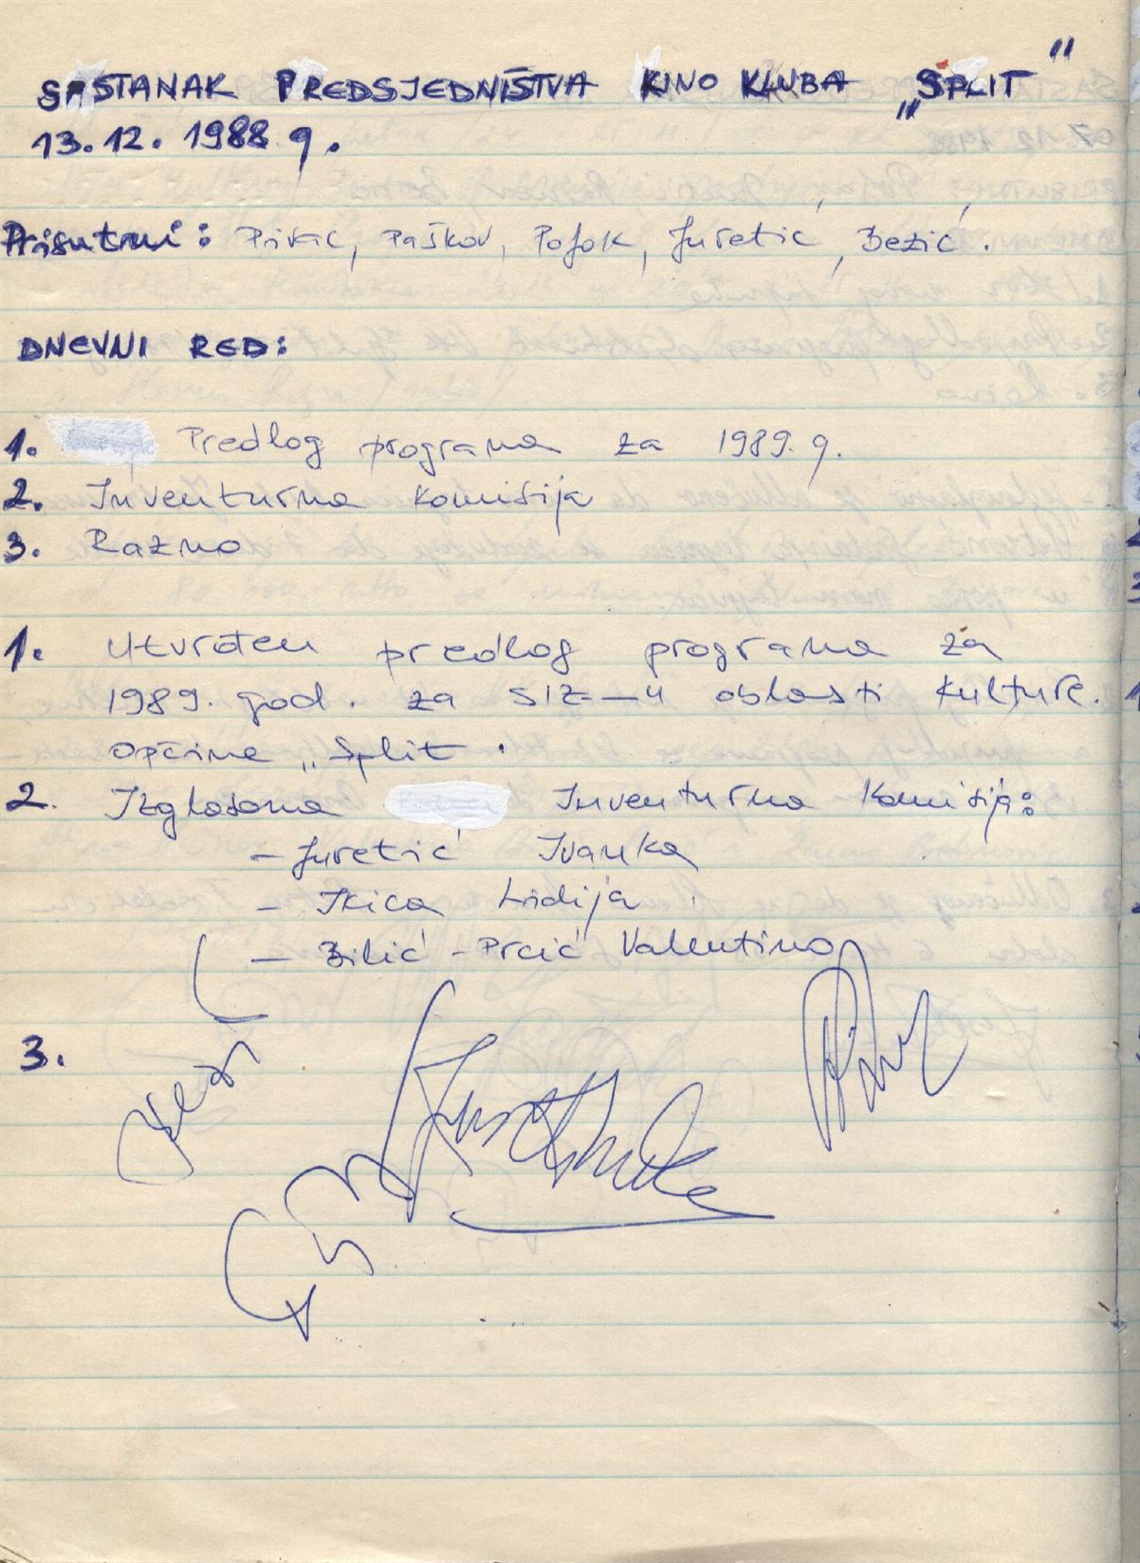 SASTANAK PREDSJEDNIŠTVA KINO KLUBA „SPLIT"
13.12. 1988 g.
Prisutni: Pivac, Paškov, Pofok, Juretić, Bezić.
DNEVNI RED:
1. Predlog programa za 1989. g.
2. Inventurna komisija
3. Razno
1. Utvrđen predlog programa za
1989. god. za SIZ-u oblasti kulture.
općine „Split.
2. Izglasana Inventurna komisija:
- Juretić Ivanka
- Ikica Lidija
- Bilić - Prcić Valentino
3.